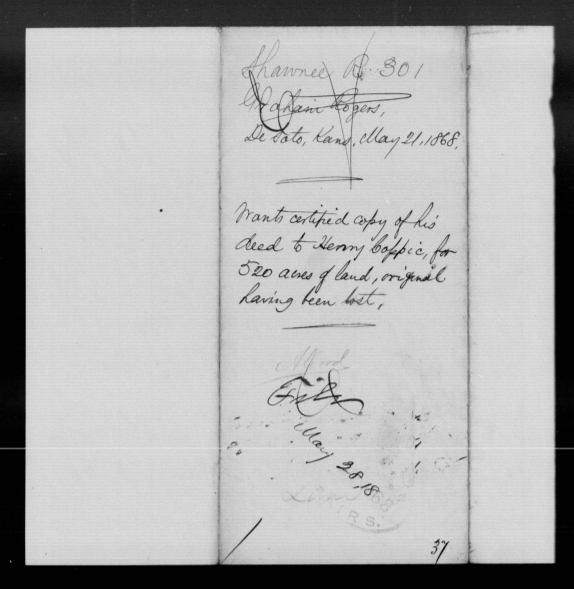 Shawnee R. 301
Graham Rogers,
De Soto, Kans, May 21, 1868.
Wants certified copy of his
deed to Henry Coppic, for
520 acres of land, original
having been lost.
File
May 28, 1868
R S.
37